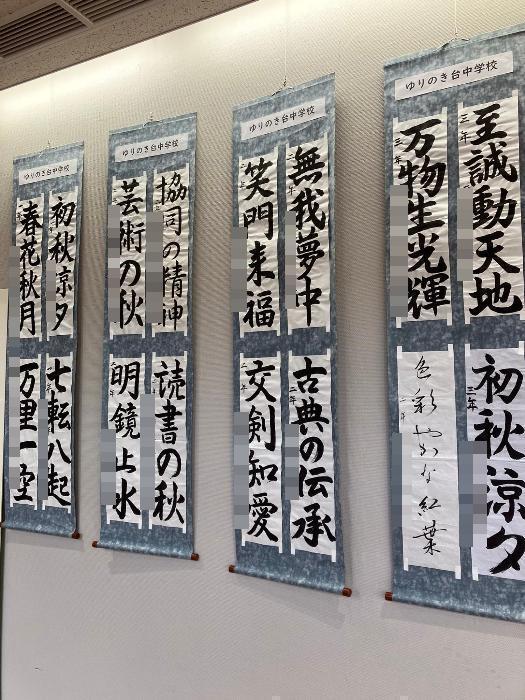 ゆりのき台中学校
至誠動天地
三年
万物生光輝
三年
初秋涼夕
三年
色彩やかな紅葉
ゆりのき台中学校
無我夢中
笑門来福
古典の伝承
二年
交剣知愛
二年
ゆりのき台中学校
協同の精神
芸術の秋
読書の秋
明鏡止水
ゆりのき台中学校
初秋涼夕
春花秋月
七転八起
万里一空